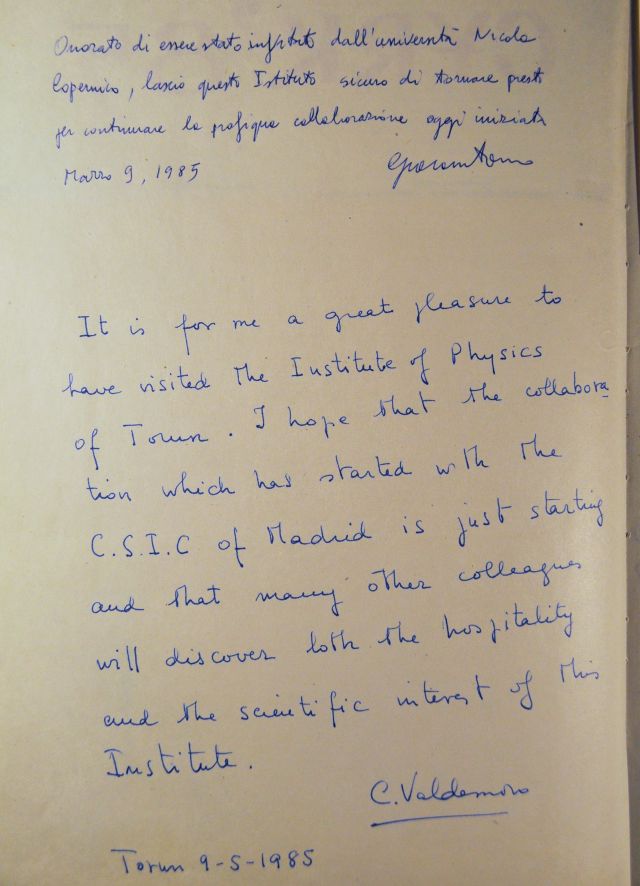 Onorato di essere stato dall'università Nicola
Copernico, lascio questo Istituto sicuro di tornare presto
per continuare la proficua collaborazione oggi iniziata
Marzo 9, 1985
It is for me a great pleasure to
have visited the Institute of Physics
of Torun. I hope that the collabora
tion which has started with the
C.S.I.C of Madrid is just starting
and that many other colleagues
will discover both the hospitality
and the scientific interest of this
Institute.
C. Valdemoro
Torun 9-5-1985